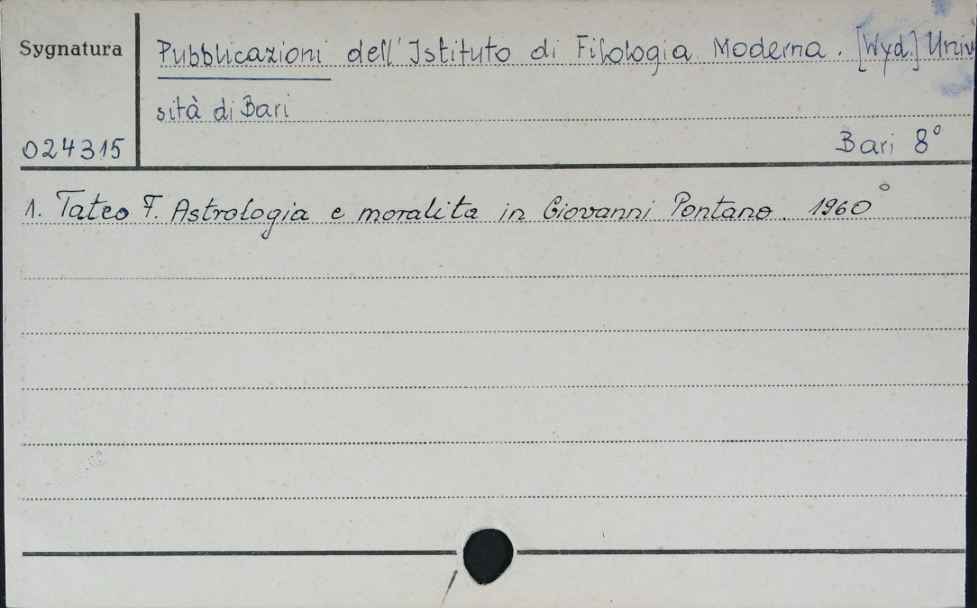 Sygnatura
Pubblicazioni dell'Istituto di Filologia Moderna. [Wyd.] Univ
sità di Bari
024315
Bari 8°
1. Tateo F. Astrologia e moralita in Giovanni Pontano. 1960°